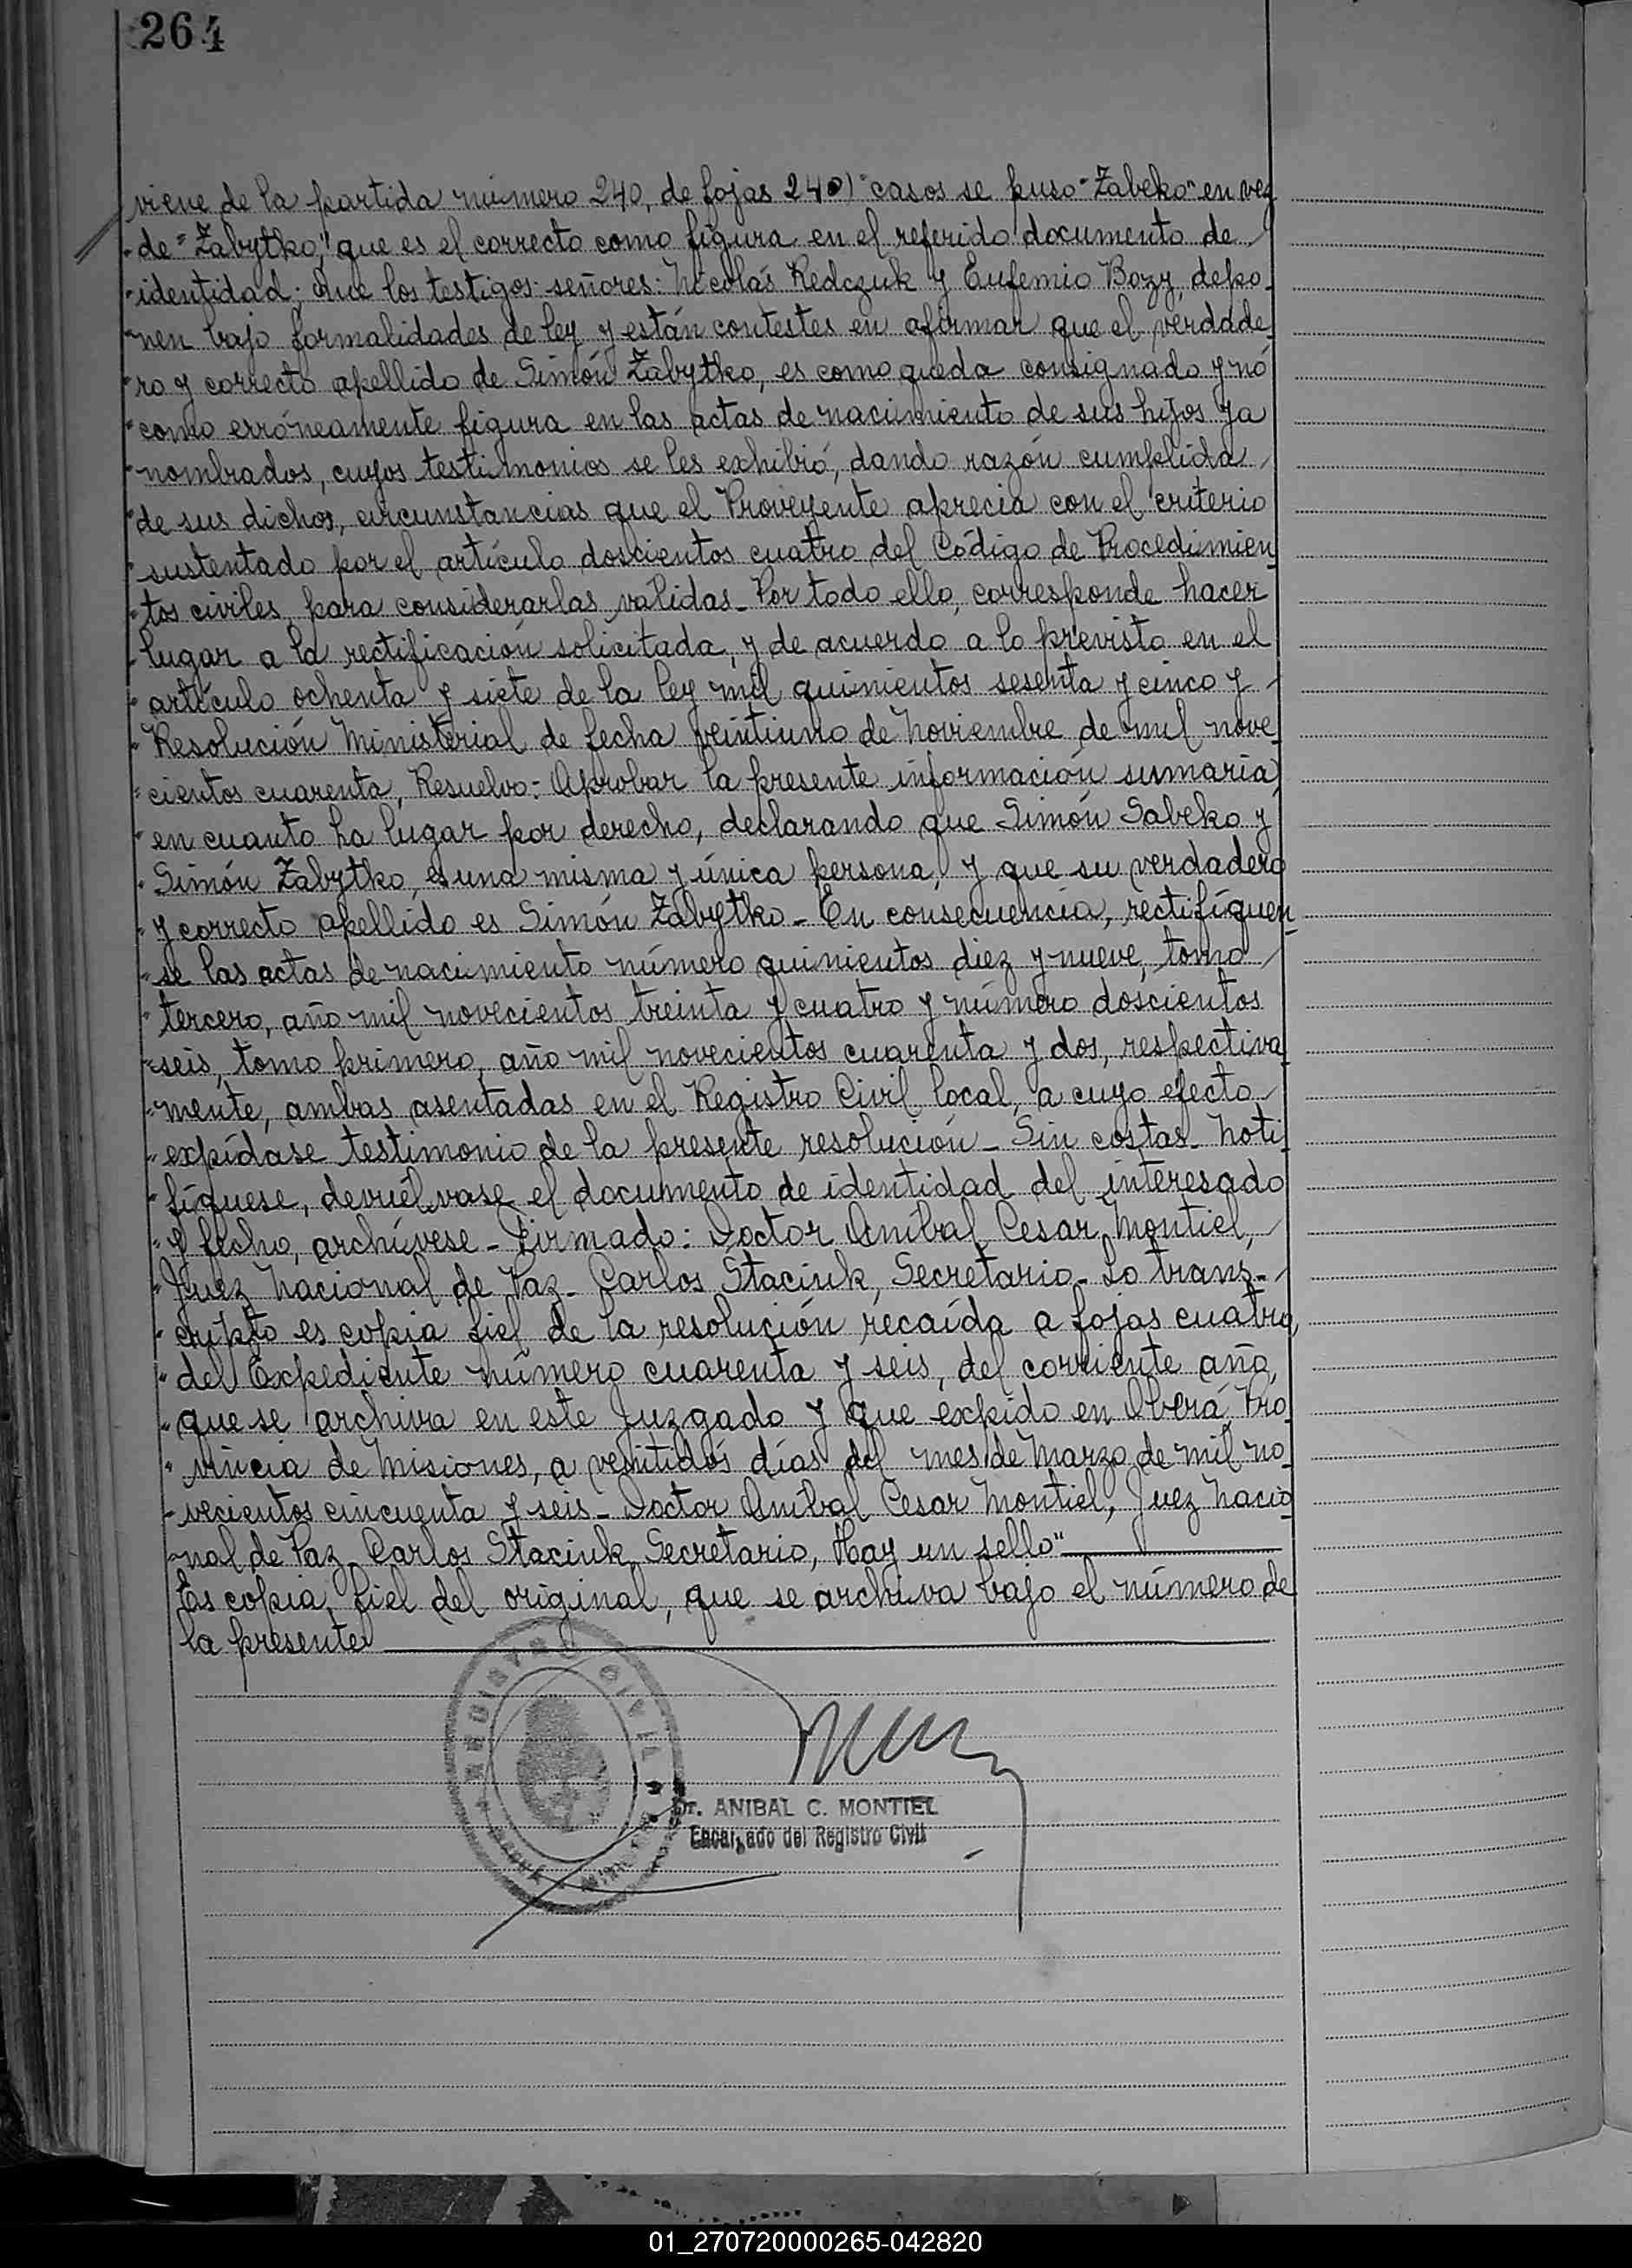 264
viene de la partida número 240, de fojas 240) "casos se puso "Zabeko" en vez
"de "Zabytko", que es el correcto como figura en el referido documento de
"identidad; Que los testigos señores: Nicolás Redczuk y Eufemio Bozy, depo_
"nen bajo formalidades de ley y están contestes en afirmar que el verdade_
"ro y correcto apellido de Simón Zabytko, es como queda consignado y nó
"como erróneamente figura en las actas de nacimiento de sus hijos ya
"nombrados, cuyos testimonios se les exhibió, dando razón cumplida
"de sus dichos, circunstancias que el Proveyente aprecia con el criterio
"sustentado por el artículo doscientos cuatro del Código de Procedimien_
"tos civiles, para considerarlas validas_ Por todo ello, corresponde hacer
"lugar a la rectificación solicitada, y de acuerdo a lo previsto en el
"artículo ochenta y siete de la ley mil quinientos sesenta y cinco y
"Resolución Ministerial de fecha veintiuno de Noviembre de mil nove_
"cientos cuarenta, Resuelvo: Aprobar la presente información sumaria,
"en cuanto ha lugar por derecho, declarando que Simón Sabeko y
"Simón Zabytko, es una misma y única persona, y que su verdadero
"y correcto apellido es Simón Zabytko_ En consecuencia, rectifíquen_
"se las actas de nacimiento número quinientos diez y nueve, tomo
"tercero, año mil novecientos treinta y cuatro y número doscientos
"seis, tomo primero, año mil novecientos cuarenta y dos, respectiva_
"mente, ambas asentadas en el Registro Civil local, a cuyo efecto
"expídase testimonio de la presente resolución_ Sin costas_ Noti_
"fíquese, devuélvase el documento de identidad del interesado
"y fecho, archívese_ Firmado: Doctor Aníbal Cesar Montiel,
"Juez Nacional de Paz_ Carlos Staciuk, Secretario_ Lo trans_
"cripto es copia fiel de la resolución recaída a fojas cuatro,
"del Expediente número cuarenta y seis, del corriente año,
"que se archiva en este Juzgado y que expido en Oberá, Pro_
"vincia de Misiones, a veintidós días del mes de Marzo de mil no_
"vecientos cincuenta y seis_ Doctor Aníbal Cesar Montiel, Juez Nacio_
"nal de Paz_ Carlos Staciuk, Secretario, Hay un sello"
Es copia fiel del original, que se archiva bajo el número de
la presente
REGISTRO CIVIL
Dr. ANIBAL C. MONTIEL
Encargado del Registro Civil
01_270720000265-042820